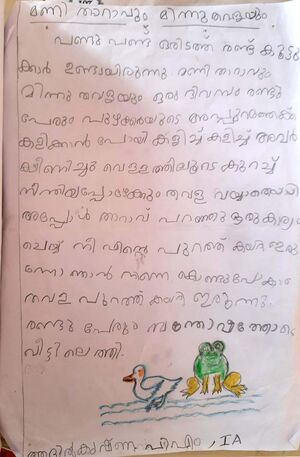 മണ്ണി താറാവും മിന്നു തവളയും
പണ്ടു പണ്ട് ഒരിടത്ത് രണ്ട് കൂട്ടു
ക്കാർ ഉണ്ടായിരുന്നു മണ്ണി താറാവും
മിന്നു തവളയും ഒരു ദിവസം രണ്ടു
പേരും പുഴക്കരയുടെ അപ്പുറത്തേക്ക്
കളിക്കാൻ പോയി കളിച്ച് കളിച്ച് അവർ
ക്ഷീണിച്ചും വെള്ളത്തിലൂടെ കുറച്ച്
നീന്തിയപ്പോഴേക്കും തവള വയ്യാതായി
അപ്പോൾ താറാവ് പറഞ്ഞു ഒരു കാര്യം
ചെയ്യ് നീ എന്റെ പുറത്ത് കയറി ഇരു
ന്നോ ഞാൻ നിന്നെ കൊണ്ടുപോകാം
തവള പുറത്ത് കയറി ഇരുന്നു.
രണ്ടു പേരും സന്തോഷത്തോടെ
വീട്ടിലെത്തി.
അദ്രികൃഷ്ണ പിഎം, IA